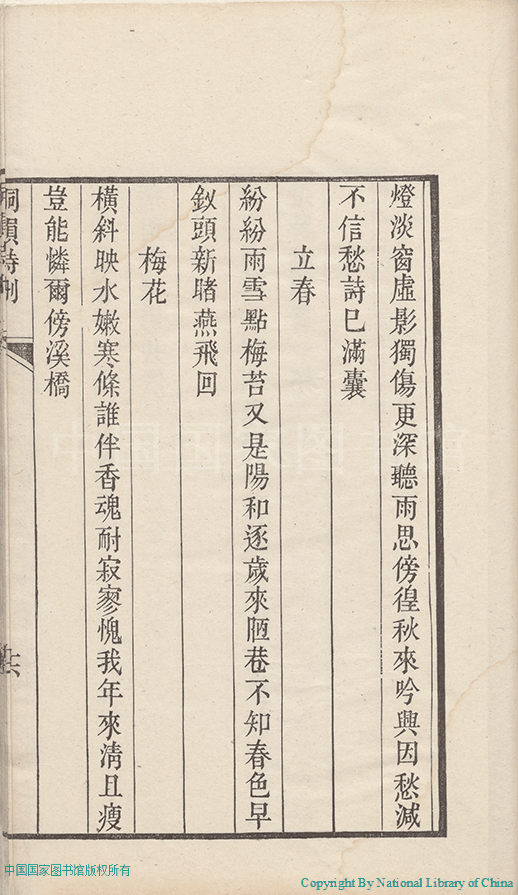 燈淡窗虛影獨傷更深聽雨思傍徨秋來吟興因愁減
不信愁詩已滿囊
立春
紛紛雨雪點梅苔又是陽和逐歲來陋巷不知春色早
釵頭新睹燕飛回
梅花
橫斜映水嫩寒條誰伴香魂耐寂寥愧我年來淸且瘦
豈能憐爾傍溪橋
中国国家图书馆
中国国家图书馆版权所有
Copyright By National Library of China